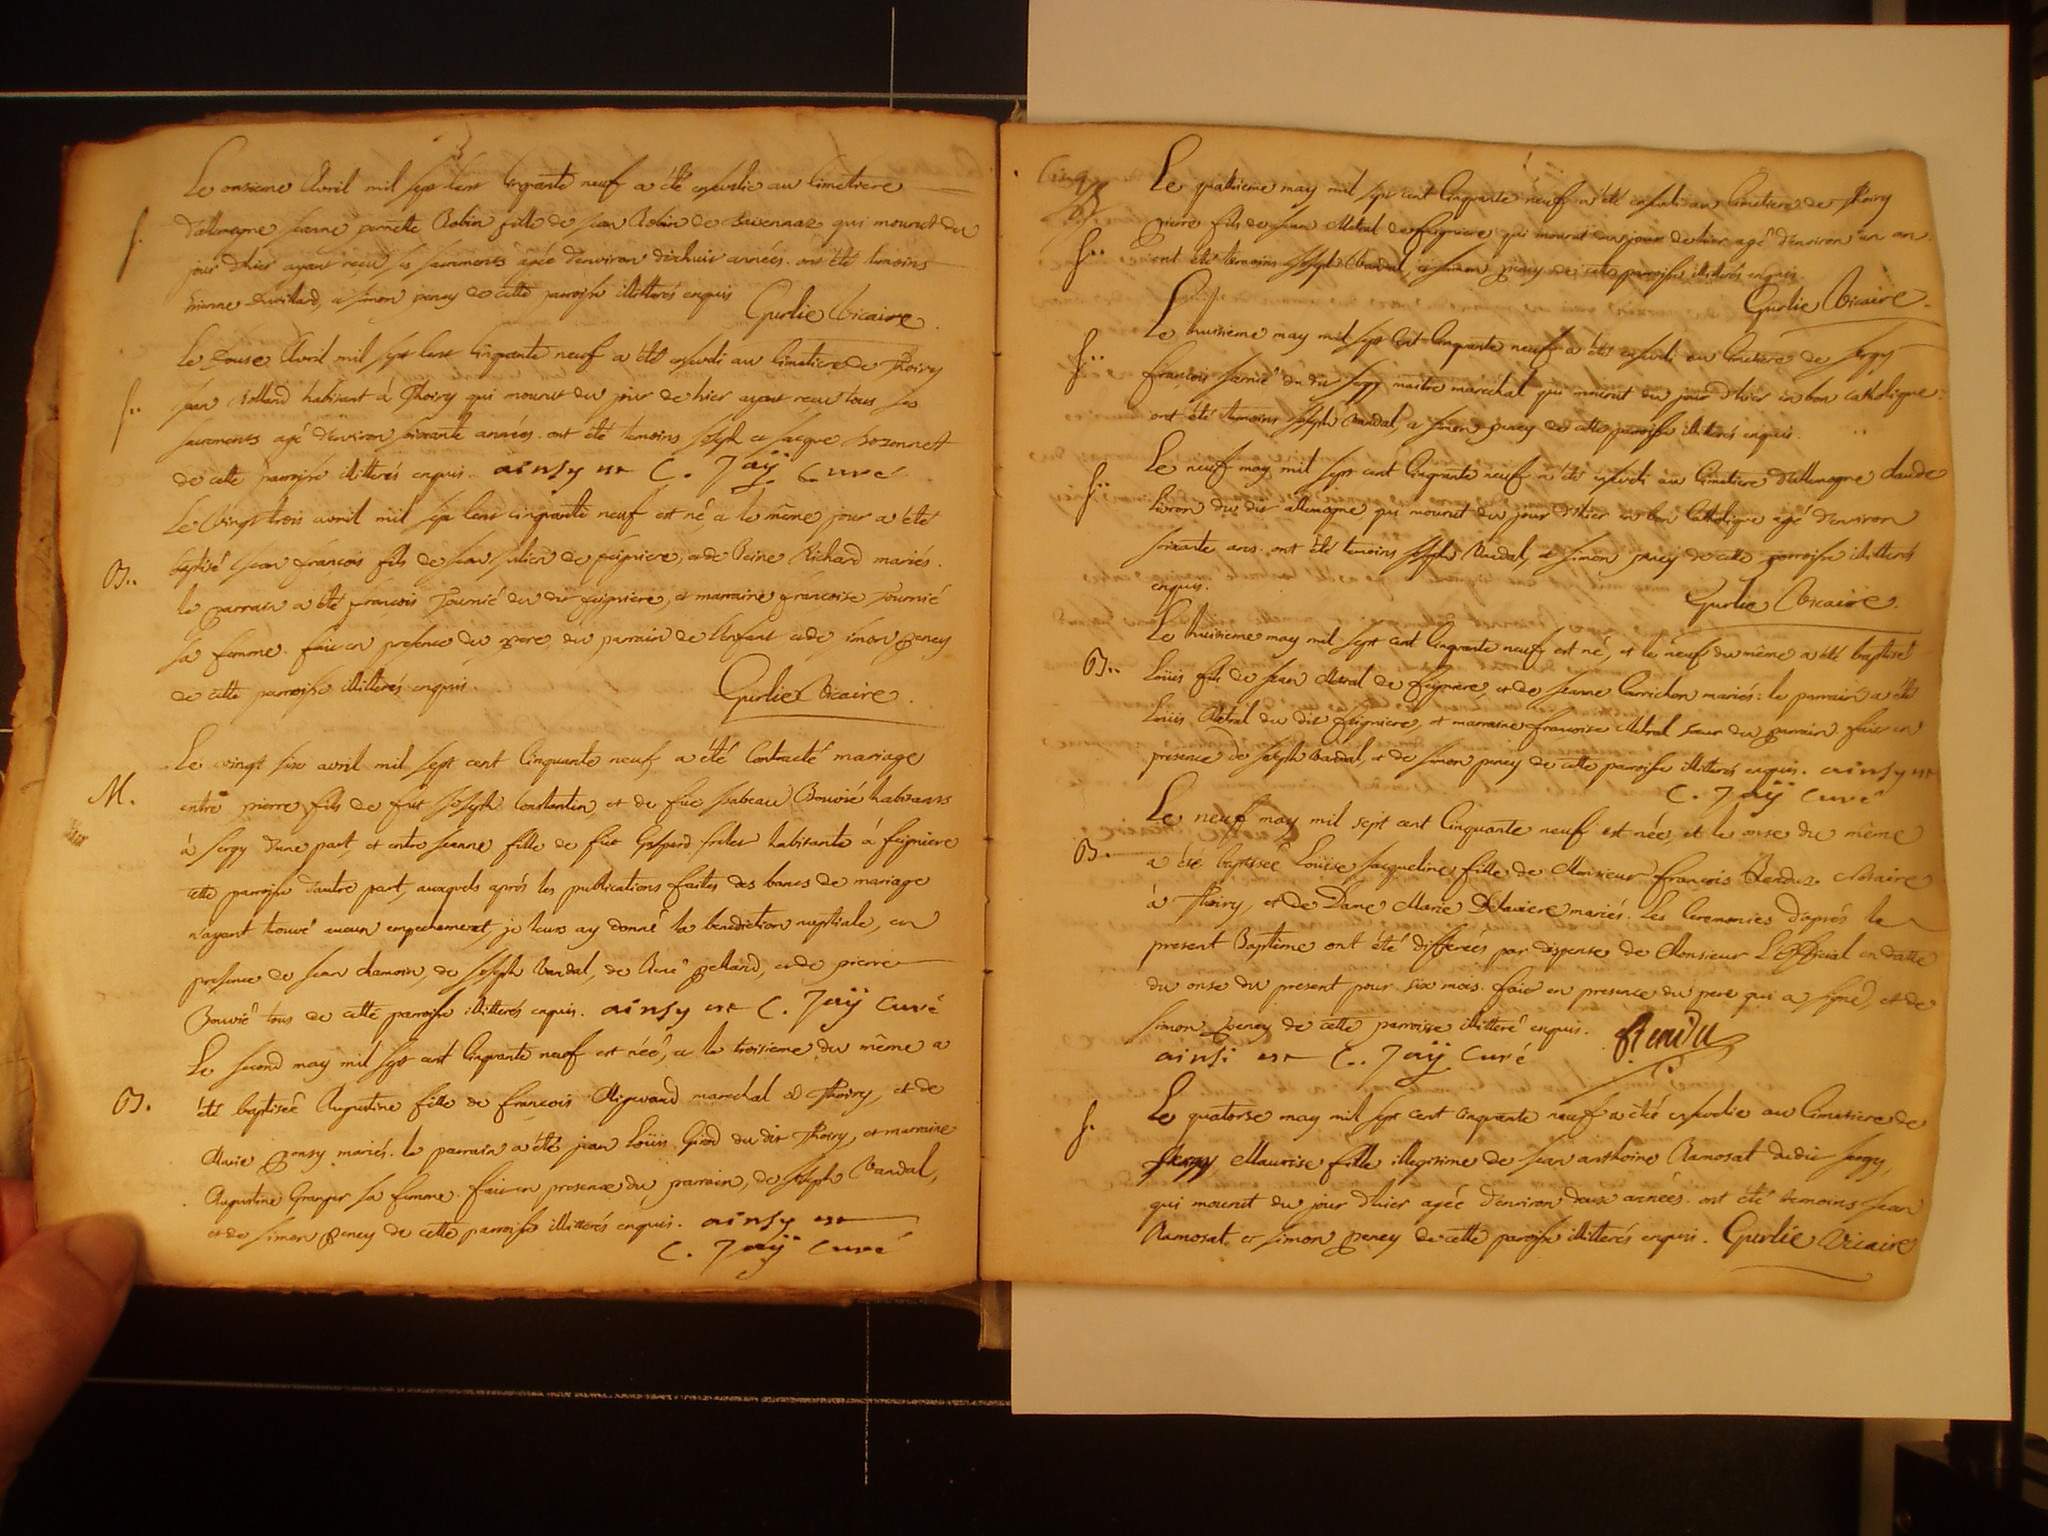 Le onzieme Avril mil sept cent cinquante neuf a été ensevelie au cimetiere
S. d'allemogne jeanne pernette Robin fille de jean Robin de qui mourut du
jour d'hier ayant reçu les sacrements agée d'environ dixhuit années. ont été temoins
Etienne Duvillard, et simon peney de cette parroisse illitterés enquis
Gurlie Vicaire.
Le Douse Avril mil sept cent cinquante neuf a été enseveli au cimetiere de Thoiry
S.. jean Rolland habitant à Thoiry qui mourut du jour de hier ayant reçu tous les
sacrements agé d'environ soixante années. ont été temoins joseph et jacque Bozonnet
de cette parroisse illitterés enquis. ainsy est C. Jaÿ Curé
Le Vingt trois avril mil sept cent cinquante neuf est né et le même jour a été
B.. baptisé jean françois fils de jean julien de feigniere, et de Reine Richard mariés.
le parrain a été françois Fournié du dit feigniere, et marraine françoise Fournié
sa femme. fait en presence du pere, du parrain de l'enfant et de simon peney
de cette parroisse illitterés enquis.
Gurlie Vicaire.
Le vingt six avril mil sept cent cinquante neuf a été contracté mariage
M. entre pierre fils de fut joseph Constantin, et de fue isabeau Bouvié habitans
à sergy d'une part, et entre jeanne fille de fut Gaspard habitante à feigniere
cette parroisse d'autre part, auxquels aprés les publications faites des bancs de mariage
n'ayant trouvé aucun empechement, je leurs ay donné la benediction nuptiale, en
presence de jean chamoin, de joseph Vandal, de René pelland, et de pierre
Bouvié tous de cette parroisse illitterés enquis. ainsy est C. Jaÿ Curé
Le second may mil sept cent cinquante neuf est née, et le troisieme du même a
B. été baptisée Augustine fille de françois maréchal à Thoiry, et de
Marie mariés. le parrain a été jean Loüis Girod du dit Thoiry, et marraine
Augustine Granger sa femme. fait en presence du parrain, de joseph Vandal,
et de simon peney de cette parroisse illitterés enquis. ainsy est
C. Jaÿ Curé
Cinq
Le quatrieme may mil sept cent cinquante neuf a été enseveli au cimetiere de Thoiry
pierre fils de jean Metral de feigniere qui mourut du jour de hier agé d'environ un an.
S.. ont été temoins joseph Vandal, et simon peney de cette parroisse illitterés enquis.
Gurlie Vicaire.
Le huitieme may mil sept cent cinquante neuf a été enseveli au cimetiere de sergy
S.. françois du dit sergy maitre marechal qui mourut du jour d'hier en bon catholique:
ont été temoins joseph Vandal, et simon peney de cette parroisse illitterés enquis.
Le neuf may mil sept cent cinquante neuf a été enseveli au cimetiere d'allemogne claude
S.. Livron du dit allemogne qui mourut du jour d'hier en bon Catholique agé d'environ
soixante ans. ont été temoins joseph Vandal, et simon peney de cette parroisse illitterés
enquis.
Gurlie Vicaire.
Le huitieme may mil sept cent cinquante neuf est né, et le neuf du même a été baptisé
B.. Loüis fils de jean Metral de feigniere, et de jeanne mariés: le parrain a été
Loüis Metral du dit feigniere, et marraine françoise Metral sœur du parrain. fait en
presence de joseph Vandal, et de simon peney de cette parroisse illitterés enquis. ainsy est
C. Jaÿ Curé
Le neuf may mil sept cent cinquante neuf est née, et le onse du même
B. a été baptisée Loüise jacqueline fille de Monsieur françois Rendu Notaire
à Thoiry, et de Dame Marie mariés. Les Ceremonies d'aprés le
present Baptême ont été différées par dispense de Monsieur L'Official en datte
du onse du present pour six mois. fait en presence du pere qui a signé, et de
simon peney de cette parroisse illitteré enquis. Rendu
ainsi est C. Jaÿ Curé
Le quatorse may mil sept cent cinquante neuf a été ensevelie au cimetiere de
S. sergy Maurise fille illegitime de jean anthoine Ramosat dudit sergy,
qui mourut du jour d'hier agée d'environ deux années. ont été temoins jean
Ramosat et simon peney de cette parroisse illitterés enquis. Gurlie Vicaire